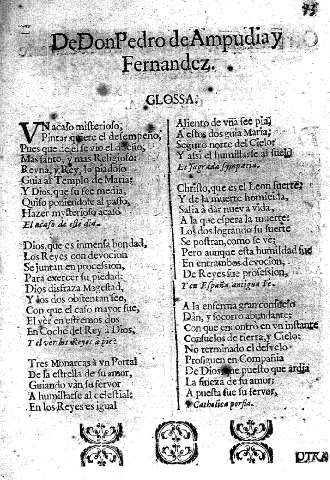 93
De Don Pedro de Ampudia y
Fernandez.
GLOSSA.
VN acaso misterioso,
Pintar quiere el desempeño,
Pues que de el se vio el diseño,
Mas santo, y mas Religioso:
Reyna, y Rey, lo piadoso
Guia al Templo de Maria;
Y Dios, que su fee media,
Quiso poniendose al passo,
Hazer mysterioso acaso
El acaso de este dia.
Dios, que es inmensa bondad,
Los Reyes con devocion
Se juntan en procession,
Para exercer su piedad:
Dios disfraza Magestad,
Y los dos obstentan fee,
Con que el caso mayor fue,
El ver en estremos dos
En Coche del Rey à Dios,
Y el ver los Reyes à pie.
Tres Monarcas à vn Portal
De la estrella de su amor,
Guiando vàn su fervor
A humillarse al celestial:
En los Reyes es igual
Aliento de vna fee pia;
A estos dos guia Maria;
Seguro norte del Cielo,
Y assi el humillarse al suelo
Es sagrada sympatia.
Christo, que es el Leon fuerte,
Y de la muerte homicida,
Salia à dar nueva vida,
A la que espera la muerte:
Los dos logrando su suerte
Se postran, como se ve;
Pero aunque esta humildad fue
En entrambos devocion,
De Reyes fue profession,
Y en España antigua Fe.
A la enferma gran consuelo
Dàn, y socorro abundante;
Con que encontrò en vn instante
Consuelos de tierra, y Cielo:
No terminado el desvelo
Prosiguen en Compañia
De Dios, que puesto que ardia
La fineza de su amor;
A puesta fue su fervor,
Catholica porfia.
OTRA